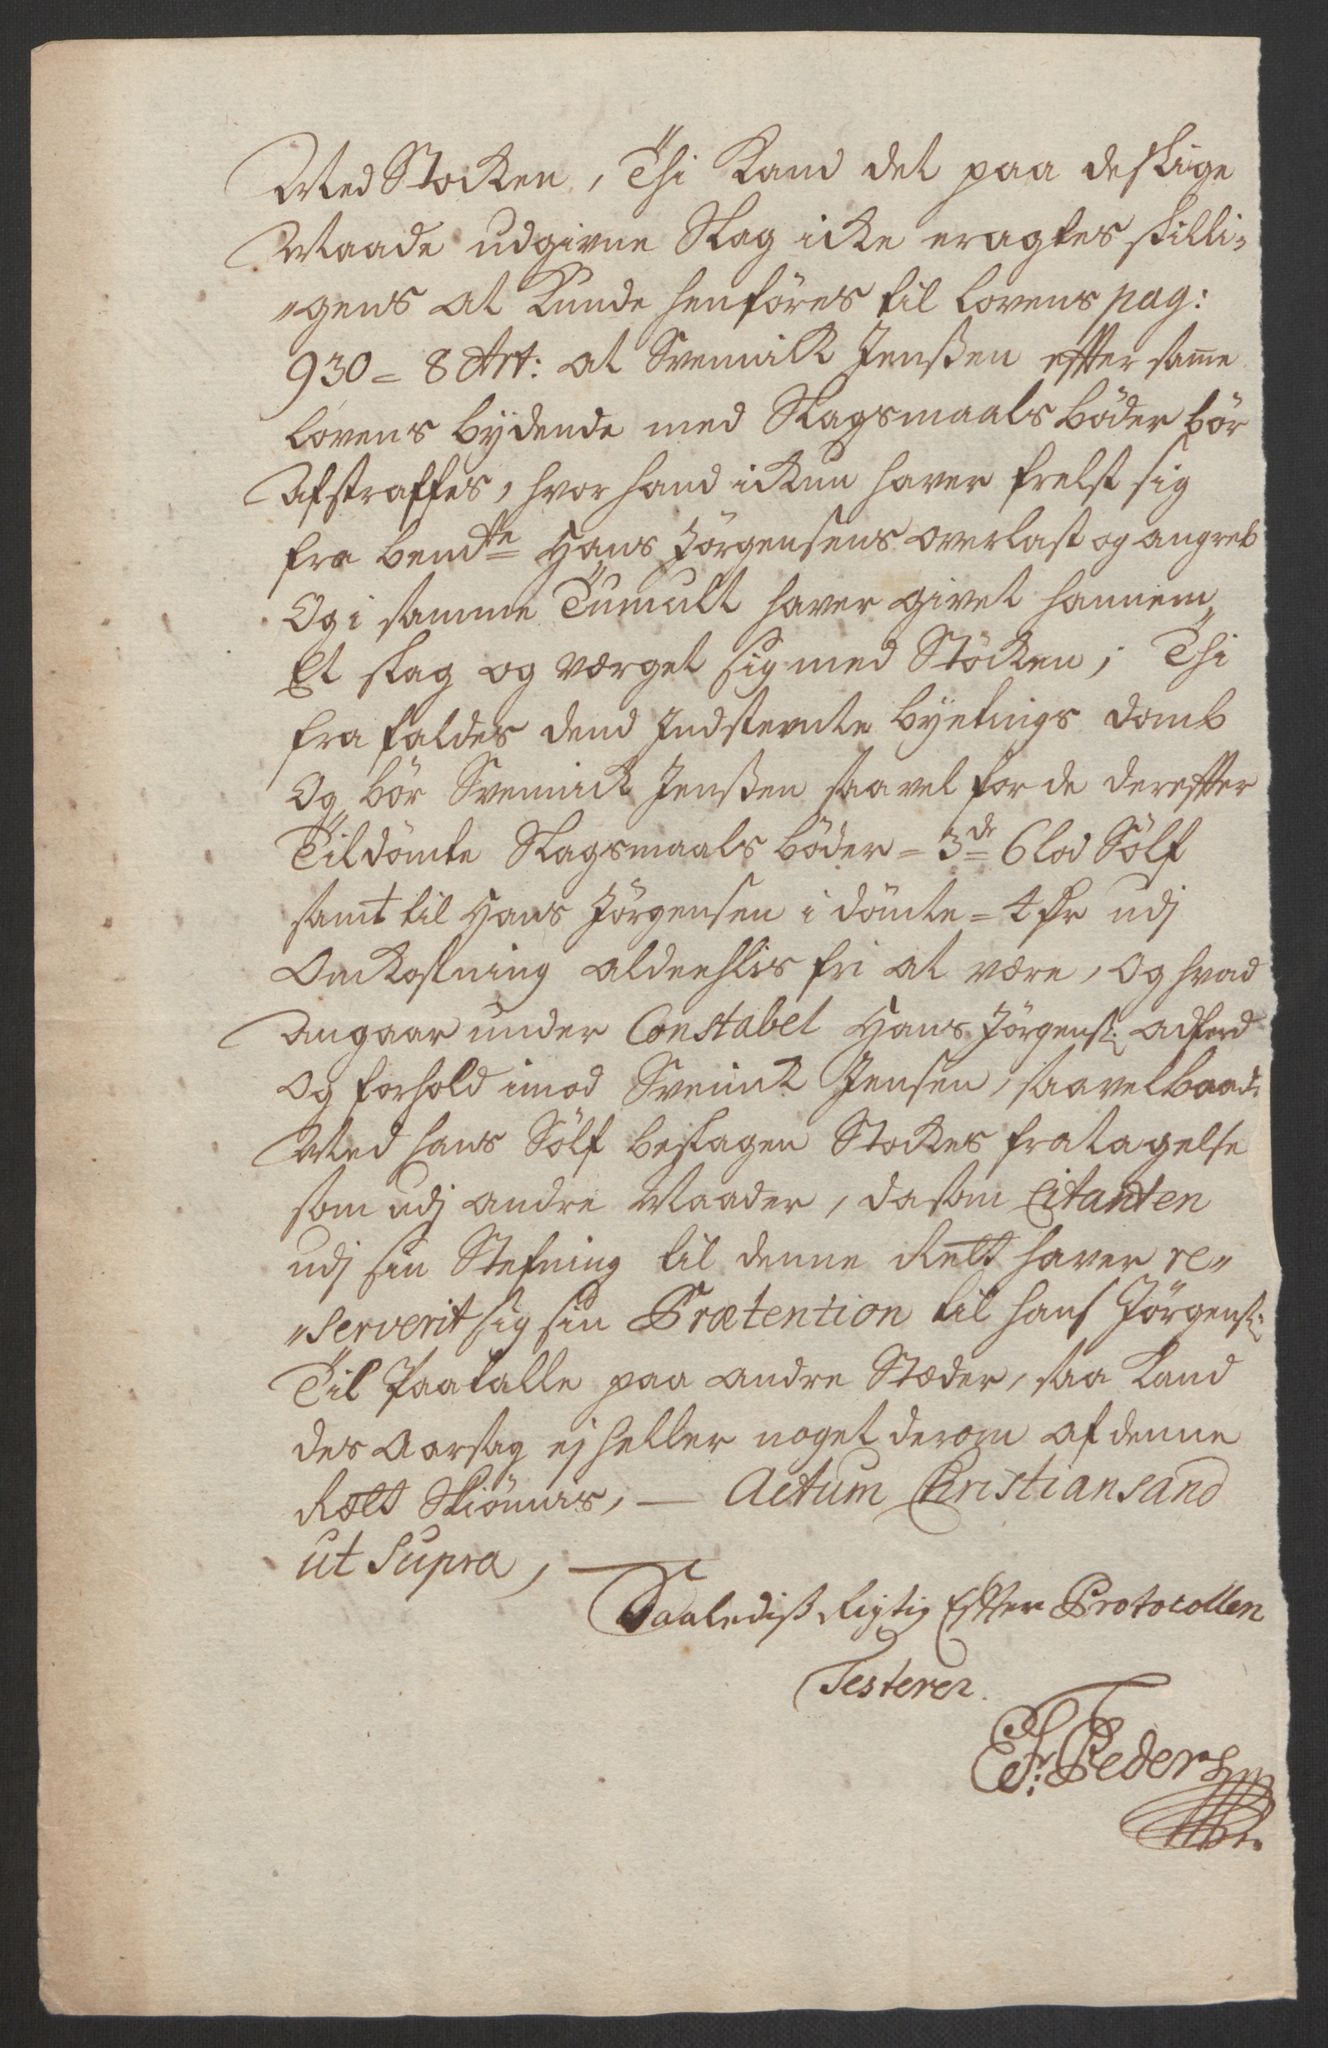 Med Stocken, Thi Kand det paa deslige
Maade udgivne Slag icke eragtes skilli„
„gens at Kunde henføres til lovens pag:
930 = 8 Art: at Svennik Jenßen efter same
lovens bydende med Slagsmaals bøder bør
Afstraffes, hvor hand ickun haver frelst sig
fra bem.te Hans Jörgensens overlast og angreb
Og i samme Tumult haver givet hannem
Et slag og værget sig med Stöcken; Thi
fra faldes dend Indstevnte byetings domb
Og bör Svennick Jenßen saavel for de derefter
Tildömte Slagsmaals bøder = 3.de 6 lod Sölf
samt til Hans Jörgensen i dömte = 4 udj
Omkostning aldeehlis fri at være, Og hvad
Angaar under Constabel Hans Jörgens: adferd
Og forhold imod Svennik Jensen, saavel baade
Med hans Sölf beslagen Stockes fratagelse
som udj andre Maader, da som Citanten
udj sin Stefning til denne Rett haver re„
„serverit sig sin Prætention til Hans Jörgens:
Til Paatalle paa andre Stæder, saa Kand
des Aarsag ej heller noget derom af denne
Rætt Skiönnis, — Actum Christiansand
ut Supra, —
Saalediß Rigtig Efter Protocollen
Testerer.
Pederß